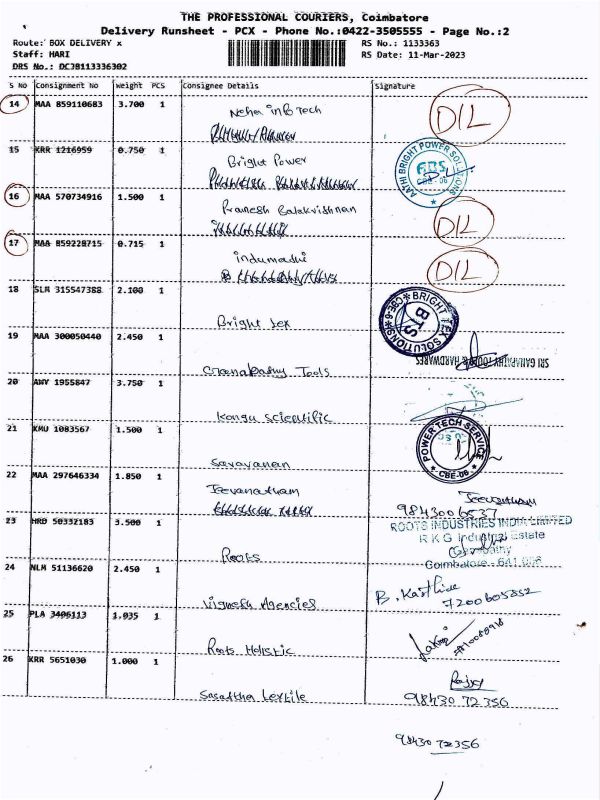 THE PROFESSIONAL COURIERS, Coimbatore
Delivery Runsheet - PCX - Phone No.:0422-3505555 - Page No.:2
Route: BOX DELIVERY x
RS No.: 1133363
Staff: HARI
RS Date: 11-Mar-2023
DRS No.: DCJB113336302
S NO Consignment No Weight PCS Consignee Details Signature
14 MAA 859110683 3.700 1 Neha info Tech D/L
15 KRR 1216959 0.750 1 Bright Power
AATHI BRIGHT POWER SOLUTIONS
CBE-06
16 MAA 570734916 1.500 1 Pranesh Balakrishnan D/L
17 MAA 859228715 0.715 1 indumadhi D/L
18 SLM 315547388 2.100 1 Bright Tex
BRIGHT TEX SOLUTIONS CBE-6
BTS
19 MAA 300050440 2.450 1 Ganabathy Tools
SRI GANAPATHY TOOLS & HARDWARES
20 AWY 1955847 3.750 1 Kongu Scientific
21 KMU 1083567 1.500 1 Saravanan
POWER TECH SERVICE
CBE-06
22 MAA 297646334 1.850 1 Jeevanatham
9843006537
23 HRD 50332183 3.500 1 Roots
ROOTS INDUSTRIES INDIA LIMITED
R K G Industrial Estate
Ganapathy
Coimbatore - 641 006
24 NLM 51136620 2.450 1 Vignesh Agencies
7200605852
25 PLA 3406113 1.035 1 Roots Holistic
26 KRR 5651030 1.000 1 Sasattha Textile
98430 72356
98430 72356